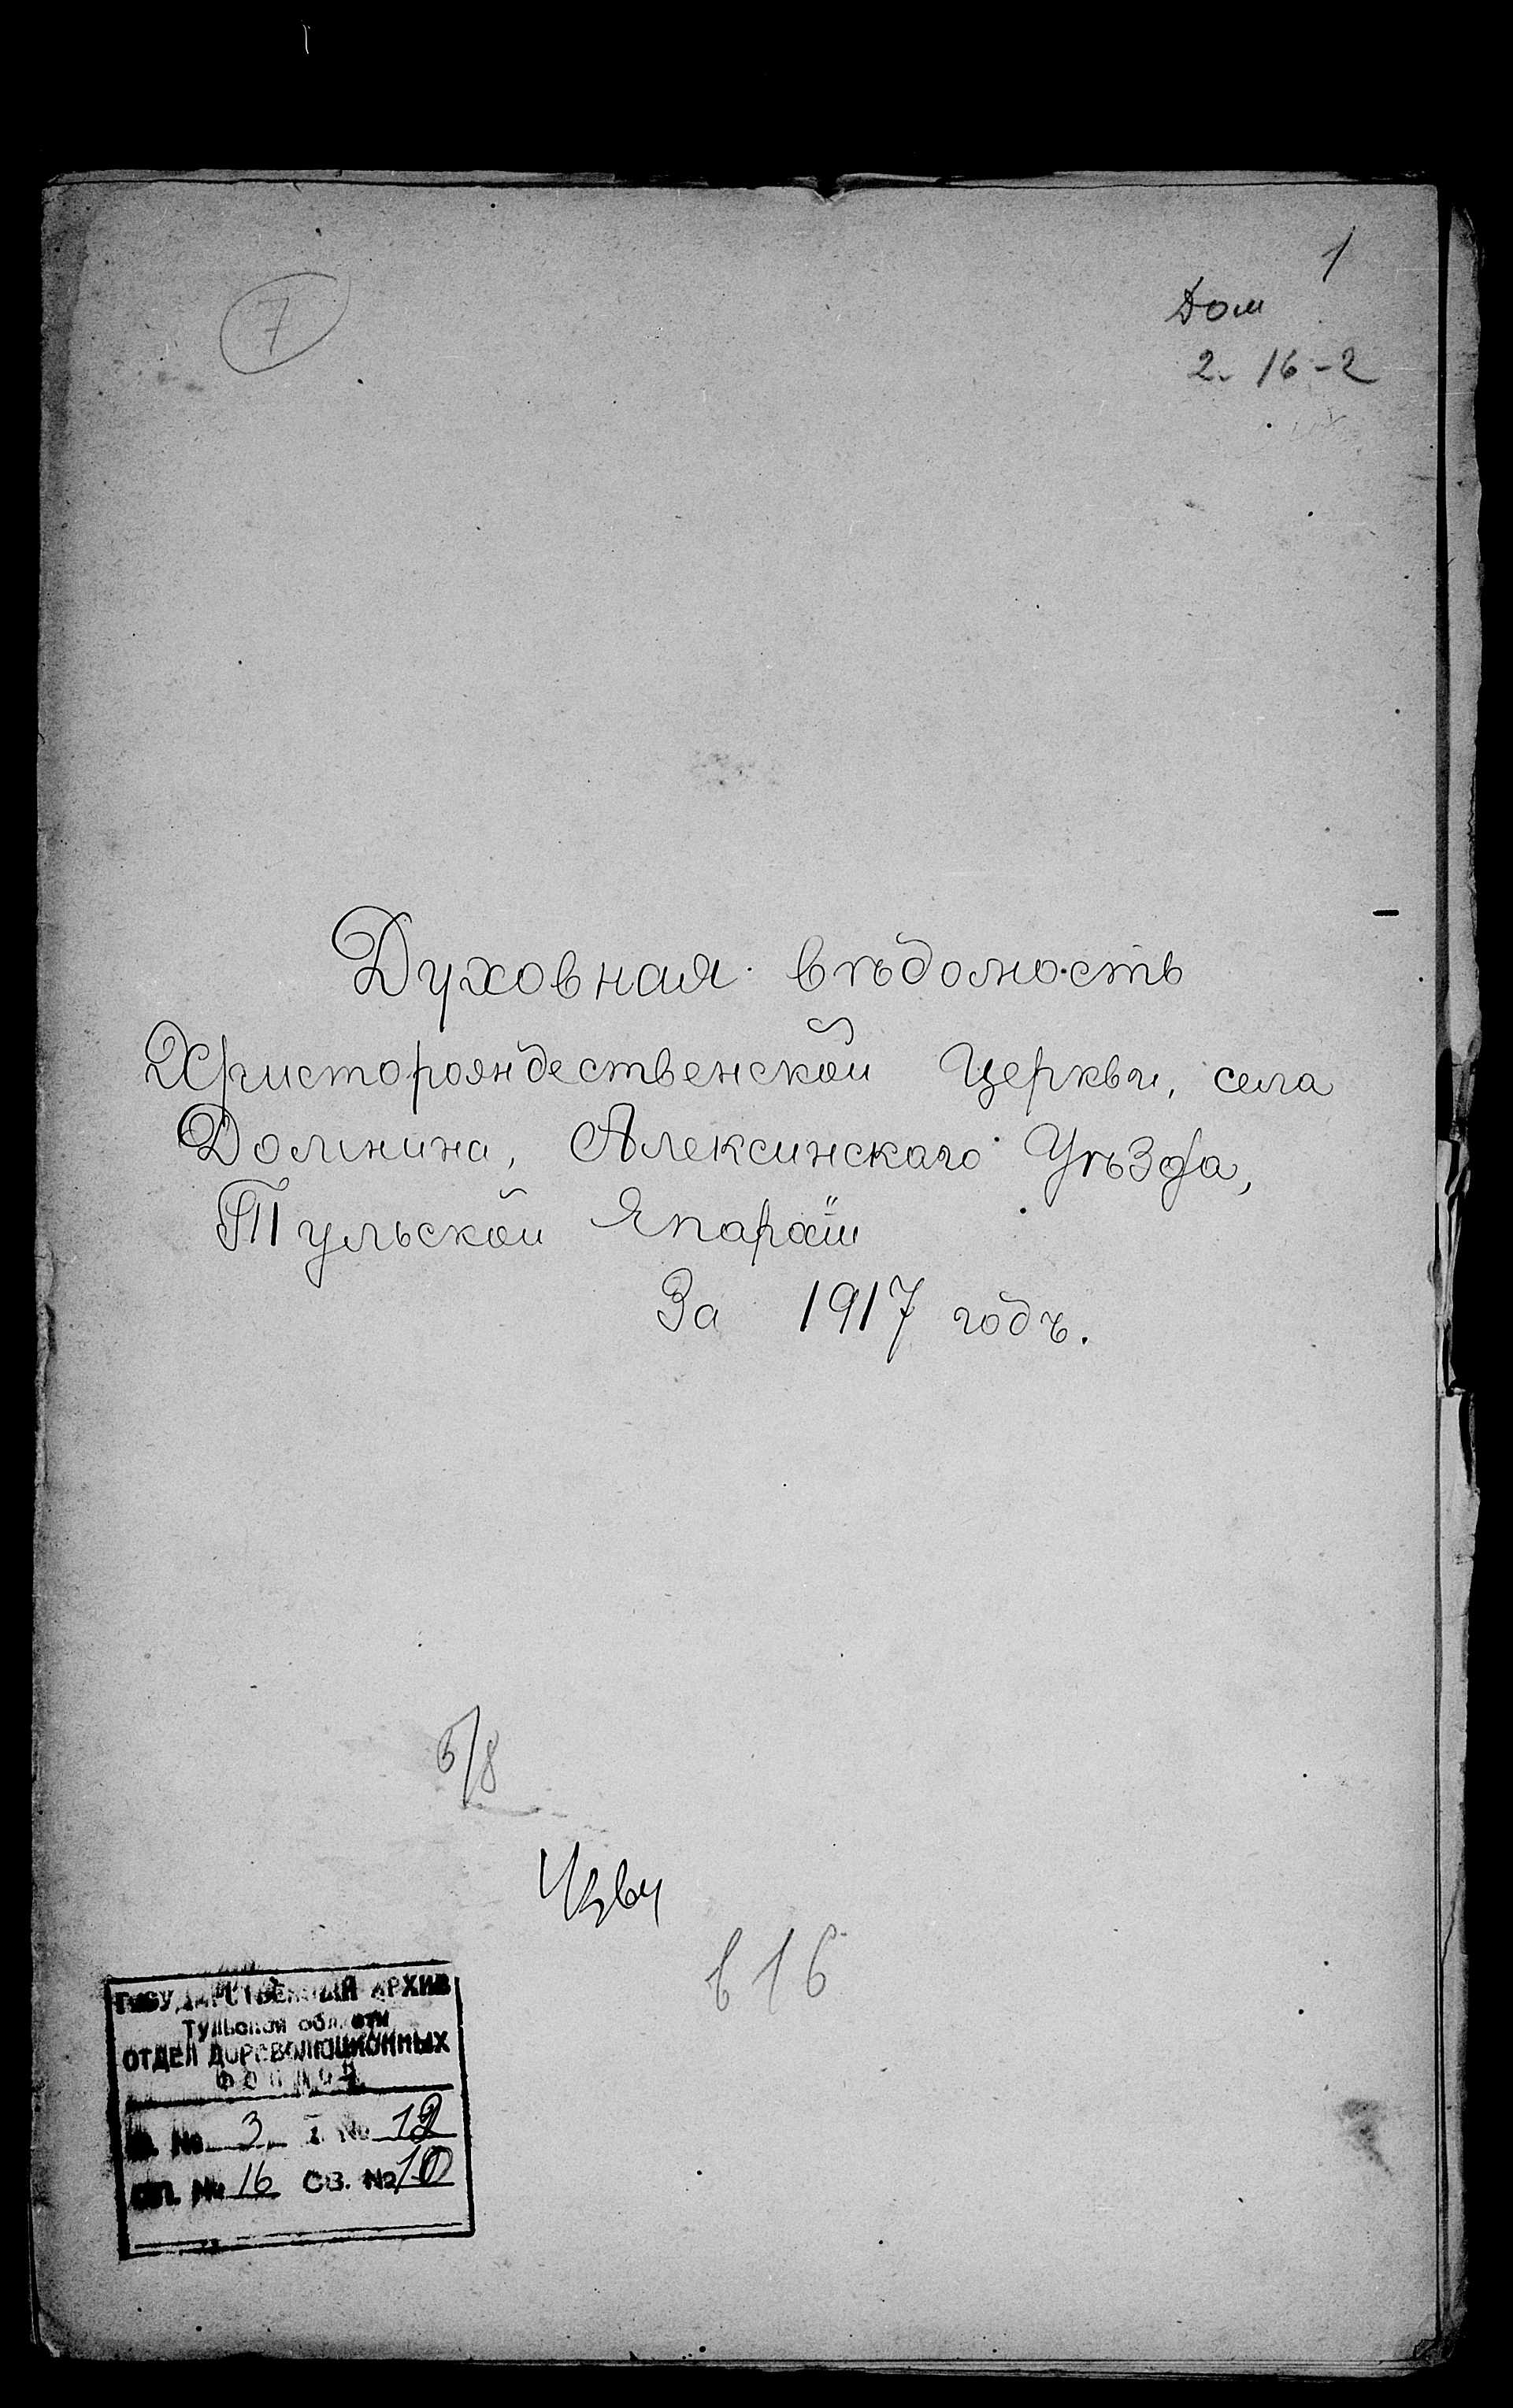 1
7
Дом
2-16-2
Духовная вѣдомость
Христорождественской Церкви, села
Домнина, Алексинскаго Уѣзда,
Тульской Епархіи
За 1917 годъ.
616
ГОСУДАРСТВЕННЫЙ АРХИВ
Тульской области
ОТДЕЛ ДОРЕВОЛЮЦИОННЫХ
ФОНДОВ
Ф. № 3 № 12
ОП. № 16 СВ. № 10